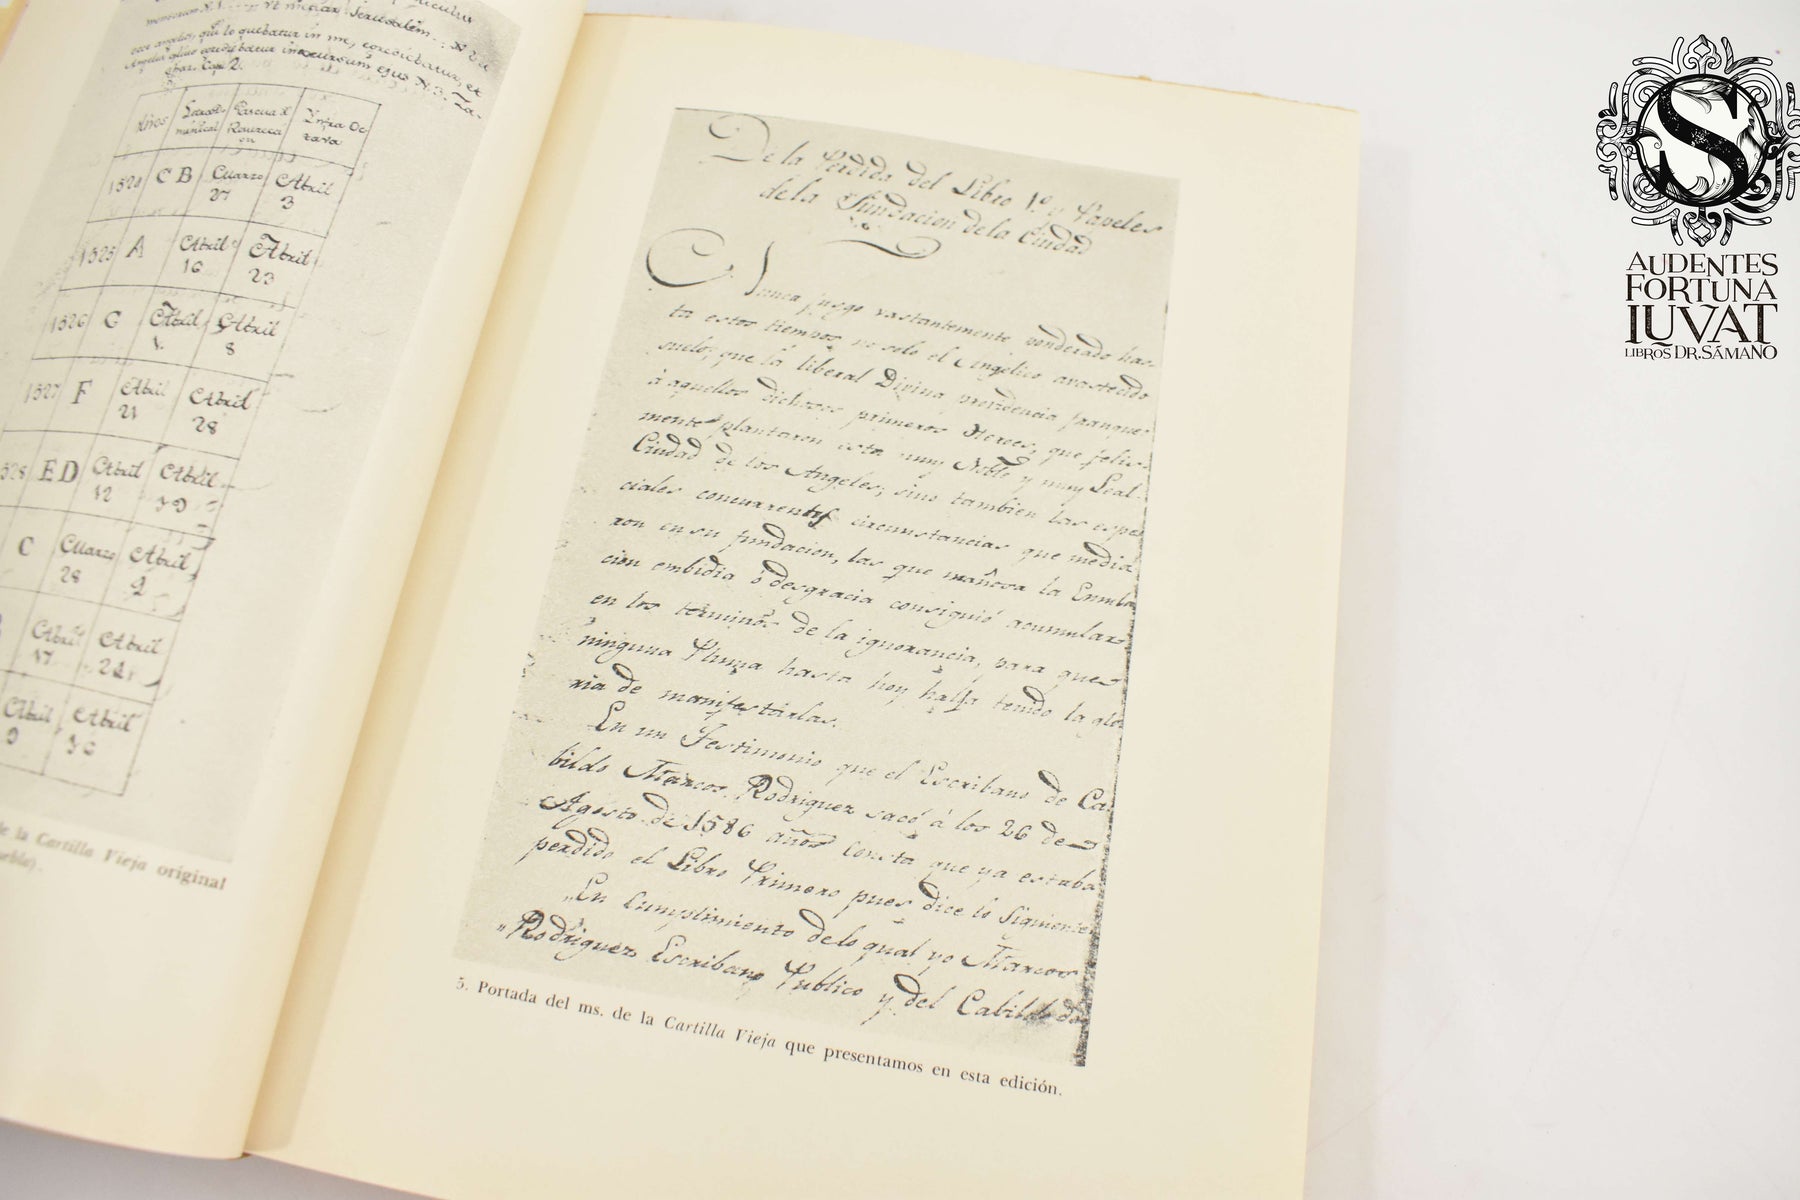 monerium N.1. Vt
Jerusalem. N.2. u
ecce angelus, qui lo quebatur in me,
Angelus
Cap. 2.
Años
Pascua d
Resurecci
on
Infra Oc
tava
1520
C B
Marzo
27
Abril
3
1525
A
Abril
16
Abril
23
1526
G
Abril
1
Abril
8
1527
F
Abril
21
Abril
28
1528
ED
Abril
12
Abril
19
C
Marzo
28
Abril
Abril
17
Abril
24
Abril
9
Abril
16
de la Cartilla Vieja original
De la Perdida del Libro 1.º y Papeles
de la Fundacion de la Ciudad
Nunca juzgo vastantemente ponderado has-
ta estos tiempos no solo el Angelico avastecido
suelo, que la liberal Divina providencia franque
â aquellos dichosos primeros Heroes, que felis-
mente plantaron esta muy Noble y muy Leal
Ciudad de los Angeles; sino tambien las espe
ciales concurrentes circumstancias que media
ron en su fundacion, las que mañosa la Emula
cion embidia ô desgracia consiguió acumular
en los terminos de la ignorancia, para que
ninguna Pluma hasta hoy halla tenido la glo
ria de manifestarlas.
En un Testimonio que el Escribano de Ca
bildo Marcos Rodriguez sacó â los 26 de
Agosto de 1586 años consta que ya estaba
perdido el Libro Primero pues dice lo Siguiente
„En Cumplimiento de lo qual yo Marcos
„Rodriguez Escribano Publico y del Cabildo
5. Portada del ms. de la Cartilla Vieja que presentamos en esta edición.
S
AUDENTES
FORTUNA
IUVAT
LIBROS DR. SÁMANO